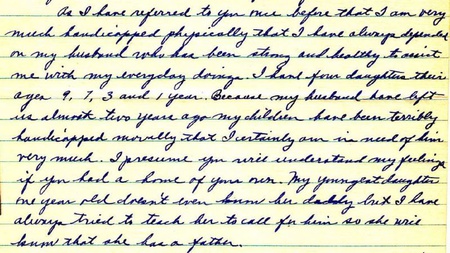 As I have referred to you once before that I am very
much handicapped physically that I have always depended
on my husband who has been strong and healthy to assist
me with my everyday doings. I have four daughters their
ages 9, 7, 3 and 1 year. Because my husband have left
us almost two years ago my children have been terribly
handicapped morally that I certainly am in need of him
very much. I presume you will understand my feelings
if you had a home of your own. My youngest daughter
one year old doesn't even know her daddy but I have
always tried to teach her to call for him so she will
know that she has a father.